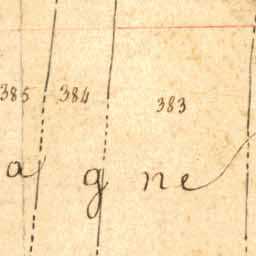 385 384 383
agne